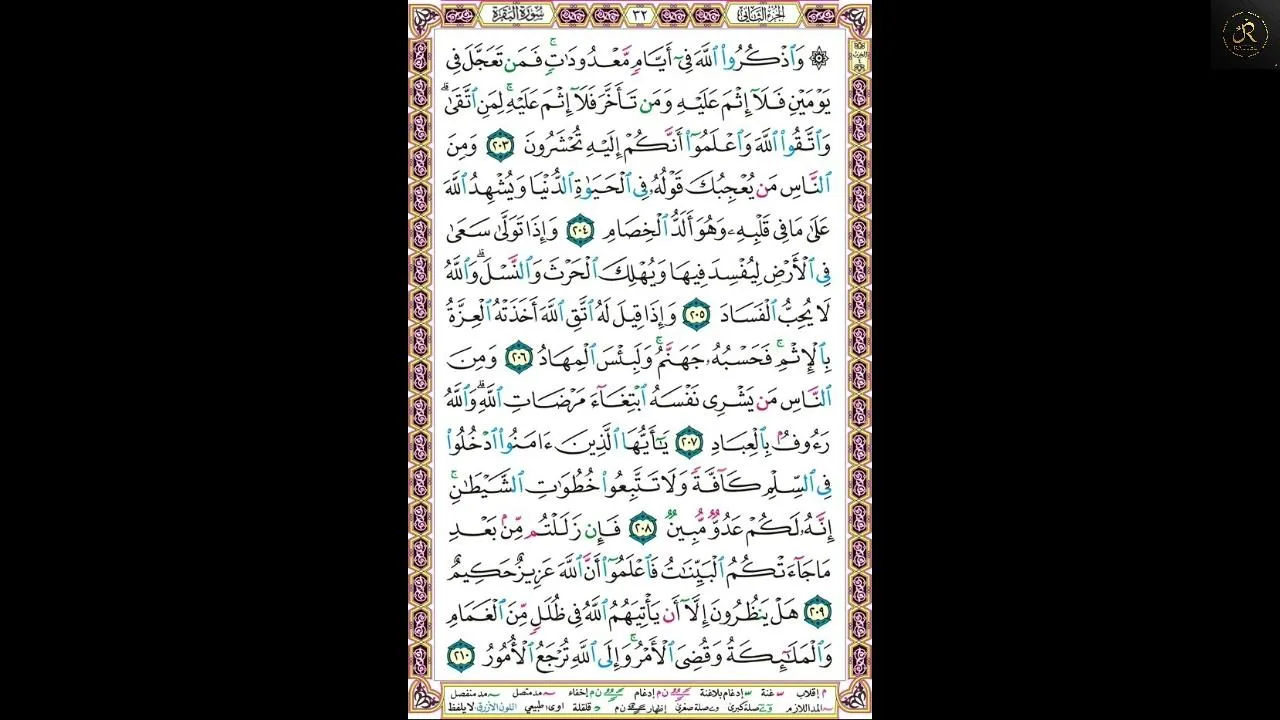 سُورَةُ البَقَرَة ٣٢ الجُزءُ الثَّانِي
۞ وَٱذْكُرُوا۟ ٱللَّهَ فِىٓ أَيَّامٍ مَّعْدُودَٰتٍ ۚ فَمَن تَعَجَّلَ فِى
يَوْمَيْنِ فَلَآ إِثْمَ عَلَيْهِ وَمَن تَأَخَّرَ فَلَآ إِثْمَ عَلَيْهِ ۚ لِمَنِ ٱتَّقَىٰ ۗ
وَٱتَّقُوا۟ ٱللَّهَ وَٱعْلَمُوٓا۟ أَنَّكُمْ إِلَيْهِ تُحْشَرُونَ ٢٠٣ وَمِنَ
ٱلنَّاسِ مَن يُعْجِبُكَ قَوْلُهُۥ فِى ٱلْحَيَوٰةِ ٱلدُّنْيَا وَيُشْهِدُ ٱللَّهَ
عَلَىٰ مَا فِى قَلْبِهِۦ وَهُوَ أَلَدُّ ٱلْخِصَامِ ٢٠٤ وَإِذَا تَوَلَّىٰ سَعَىٰ
فِى ٱلْأَرْضِ لِيُفْسِدَ فِيهَا وَيُهْلِكَ ٱلْحَرْثَ وَٱلنَّسْلَ ۗ وَٱللَّهُ
لَا يُحِبُّ ٱلْفَسَادَ ٢٠٥ وَإِذَا قِيلَ لَهُ ٱتَّقِ ٱللَّهَ أَخَذَتْهُ ٱلْعِزَّةُ
بِٱلْإِثْمِ ۚ فَحَسْبُهُۥ جَهَنَّمُ ۚ وَلَبِئْسَ ٱلْمِهَادُ ٢٠٦ وَمِنَ
ٱلنَّاسِ مَن يَشْرِى نَفْسَهُ ٱبْتِغَآءَ مَرْضَاتِ ٱللَّهِ ۗ وَٱللَّهُ
رَءُوفٌۢ بِٱلْعِبَادِ ٢٠٧ يَٰٓأَيُّهَا ٱلَّذِينَ ءَامَنُوا۟ ٱدْخُلُوا۟
فِى ٱلسِّلْمِ كَآفَّةً وَلَا تَتَّبِعُوا۟ خُطُوَٰتِ ٱلشَّيْطَٰنِ ۚ
إِنَّهُۥ لَكُمْ عَدُوٌّ مُّبِينٌ ٢٠٨ فَإِن زَلَلْتُم مِّنۢ بَعْدِ
مَا جَآءَتْكُمُ ٱلْبَيِّنَٰتُ فَٱعْلَمُوٓا۟ أَنَّ ٱللَّهَ عَزِيزٌ حَكِيمٌ
٢٠٩ هَلْ يَنظُرُونَ إِلَّآ أَن يَأْتِيَهُمُ ٱللَّهُ فِى ظُلَلٍ مِّنَ ٱلْغَمَامِ
وَٱلْمَلَٰٓئِكَةُ وَقُضِىَ ٱلْأَمْرُ ۚ وَإِلَى ٱللَّهِ تُرْجَعُ ٱلْأُمُورُ ٢١٠
م إقلاب غنة إدغام بلاغنة ن م إدغام ن م إخفاء مد متصل مد منفصل
المد اللازم صلة كبرى صلة صغرى إظهار ن م قلقلة اوى: طبيعي اللون الأزرق: لا يلفظ